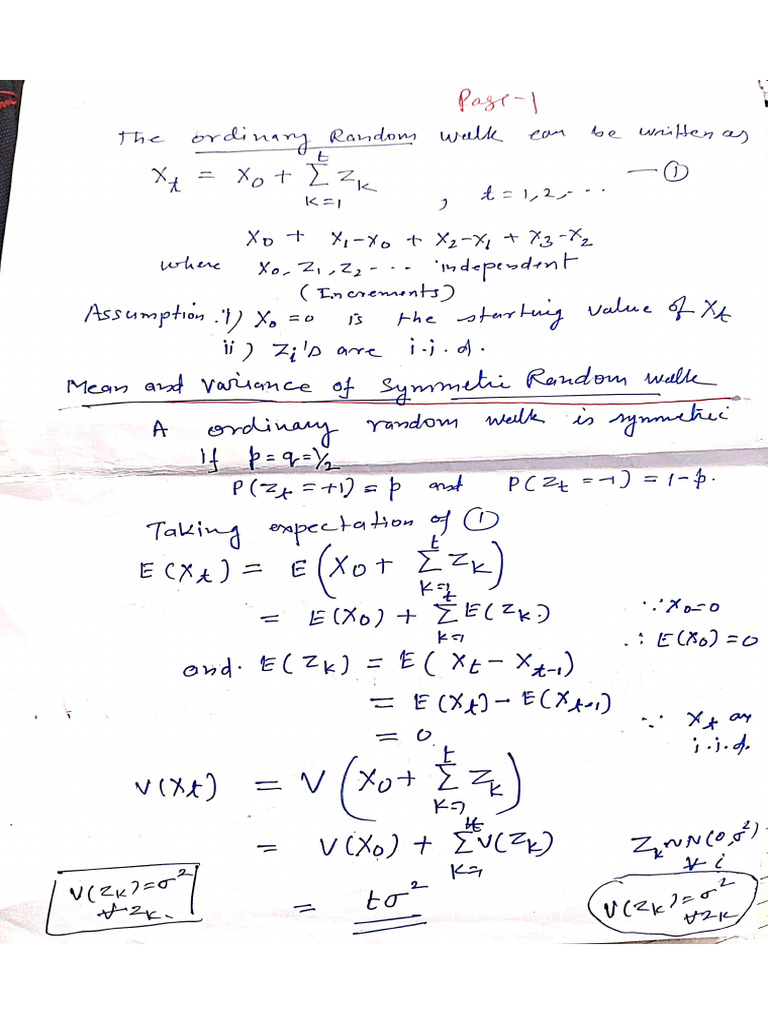 Page-1
The ordinary Random walk can be written as
X_t = X_0 + Σ_{k=1}^{t} Z_k , t = 1, 2, ... —①
X_0 + X_1-X_0 + X_2-X_1 + X_3-X_2
where X_0, Z_1, Z_2 --- independent
(Increments)
Assumption: i) X_0 = 0 is the starting value of X_t
ii) Z_i's are i.i.d.
Mean and Variance of Symmetric Random walk
A ordinary random walk is symmetric
If p = q = 1/2
P(Z_t = +1) = p and P(Z_t = -1) = 1-p.
Taking expectation of ①
E(X_t) = E(X_0 + Σ_{k=1}^{t} Z_k)
= E(X_0) + Σ_{k=1}^{t} E(Z_k) ∵ X_0=0
∴ E(X_0) = 0
and. E(Z_k) = E(X_t - X_{t-1})
= E(X_t) - E(X_{t-1})
= 0 ∵ X_t are
i.i.d.
V(X_t) = V(X_0 + Σ_{k=1}^{t} Z_k)
= V(X_0) + Σ_{k=1}^{t} V(Z_k) Z_k ~ N(0, σ²)
∀ i
V(Z_k) = σ²
∀ Z_k.
= tσ²
V(Z_k) = σ²
∀ Z_k